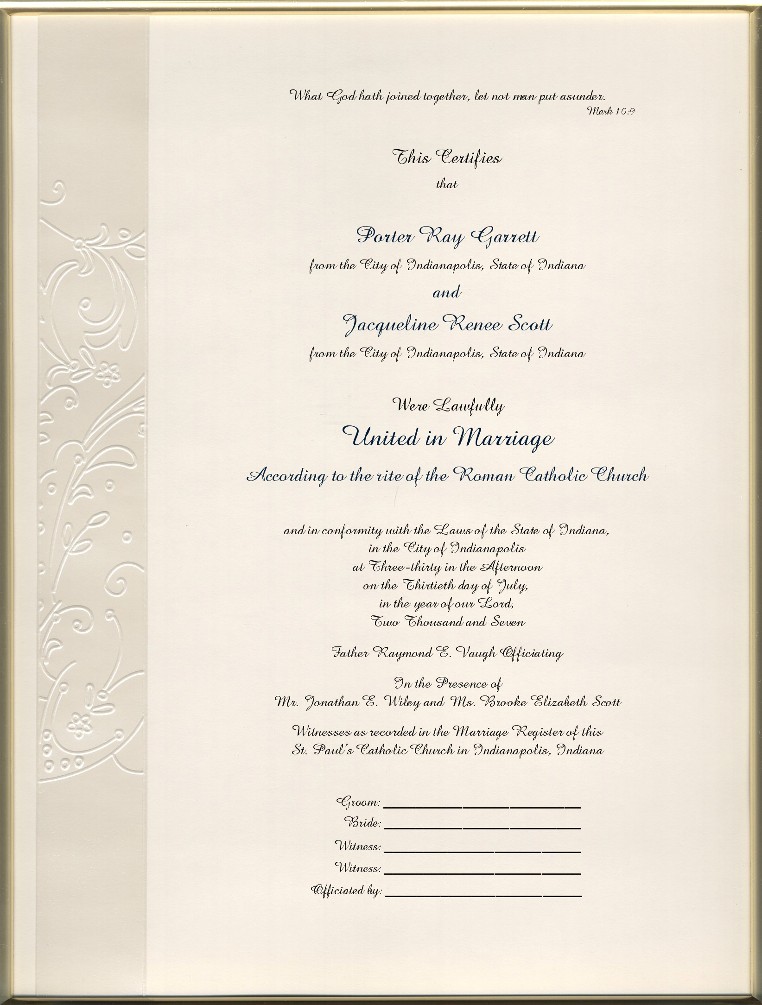 What God hath joined together, let not man put asunder.
Mark 10:9
This Certifies
that
Porter Ray Garrett
from the City of Indianapolis, State of Indiana
and
Jacqueline Renee Scott
from the City of Indianapolis, State of Indiana
Were Lawfully
United in Marriage
According to the rite of the Roman Catholic Church
and in conformity with the Laws of the State of Indiana,
in the City of Indianapolis
at Three-thirty in the Afternoon
on the Thirtieth day of July,
in the year of our Lord,
Two Thousand and Seven
Father Raymond E. Vaugh Officiating
In the Presence of
Mr. Jonathan E. Wiley and Ms. Brooke Elizabeth Scott
Witnesses as recorded in the Marriage Register of this
St. Paul's Catholic Church in Indianapolis, Indiana
Groom:
Bride:
Witness:
Witness:
Officiated by: